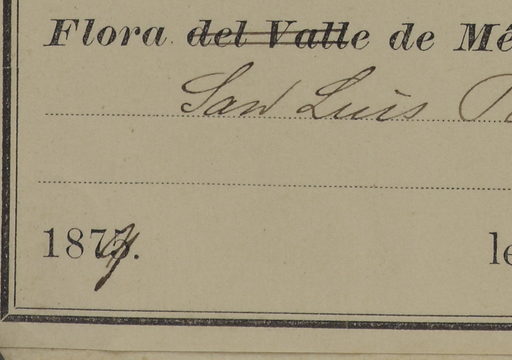 Flora del Valle de Mé
San Luis
187
le